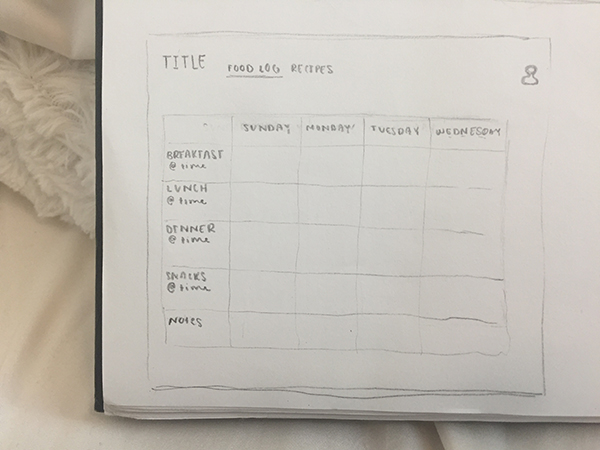 TITLE FOOD LOG RECIPES
SUNDAY MONDAY TUESDAY WEDNESDAY
BREAKFAST
@ time
LUNCH
@ time
DINNER
@ time
SNACKS
@ time
NOTES